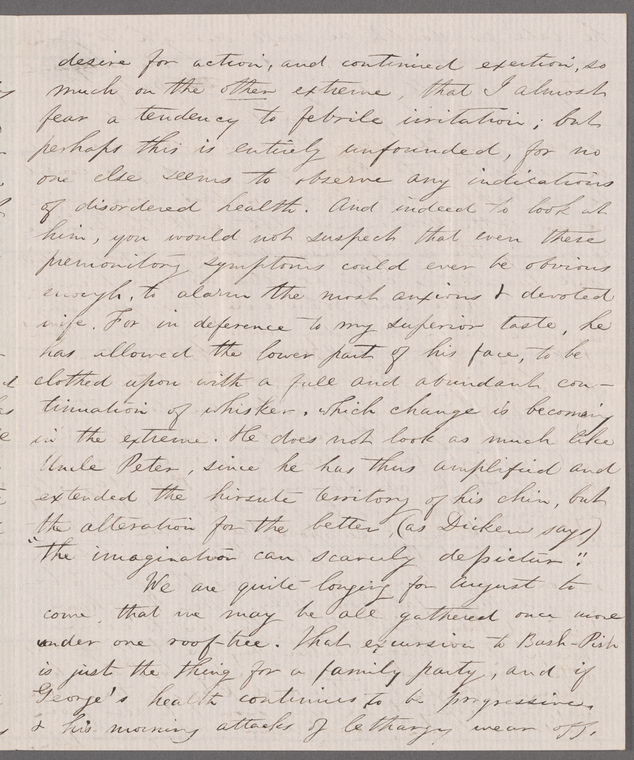 desire for action, and continued exertion, so
much on the other extreme, that I almost
fear a tendency to febrile irritation; but
perhaps this is entirely unfounded, for no
one else seems to observe any indications
of disordered health. And indeed to look at
him, you would not suspect that even these
premonitory symptoms could ever be obvious
enough, to alarm the most anxious & devoted
wife. For in deference to my superior taste, he
has allowed the lower part of his face, to be
clothed upon with a full and abundant con-
tinuation of whisker, which change is becoming
in the extreme. He does not look as much like
Uncle Peter, since he has thus amplified and
extended the hirsute territory of his chin, but
the alteration for the better, (as Dickens says)
"the imagination can scarcely depictur"!
We are quite longing for August to
come, that we may be all gathered once more
under one roof-tree. That excursion to Bash-Pish
is just the thing for a family party, and if
George's health continues to be progressive,
& his morning attacks of lethargy wear off,